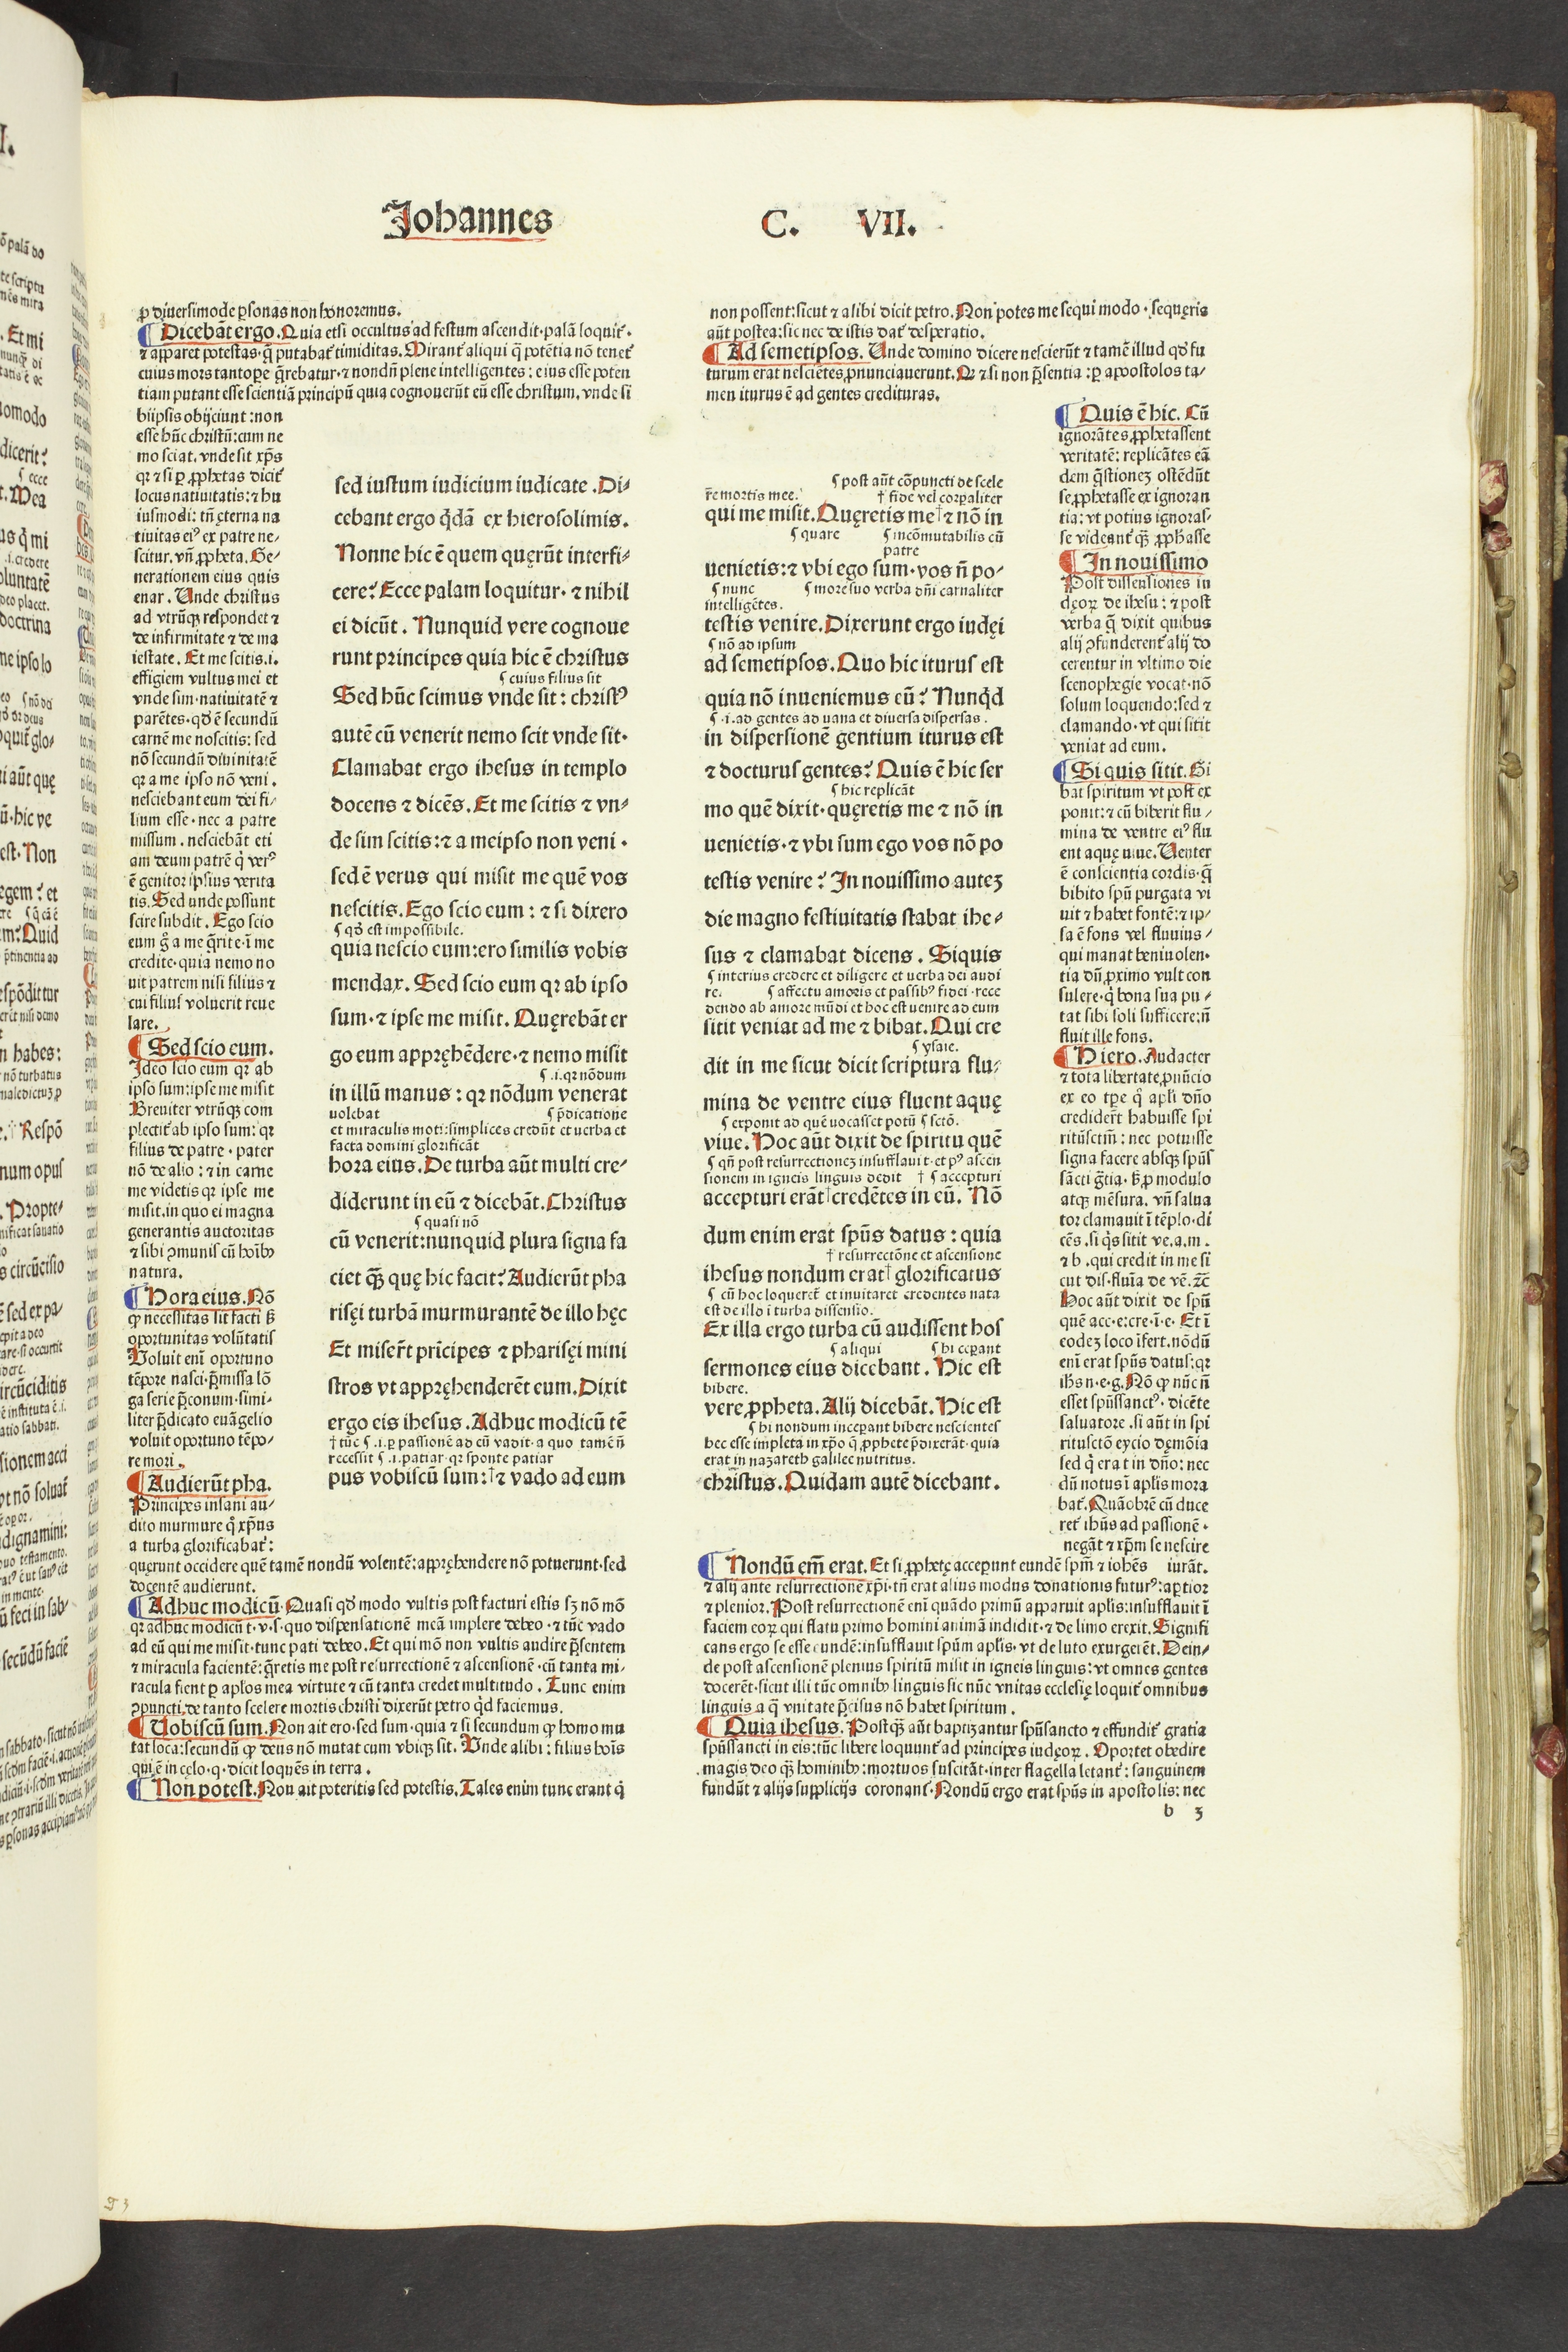 Johannes C. VII.
ꝓ diuersimode ꝑsonas non honoremus.
Dicebãt ergo. Quia etsi occultus ad festum ascendit·palã loquit᷑·
⁊ apparet potestas·q̃ putabat᷑ timiditas. Mirant᷑ aliqui q̃ potẽtia nõ tenet᷑
cuius mors tantoꝑe q̃rebatur·⁊ nondũ plene intelligentes: eius esse poten
tiam putant esse scientiã principũ quia cognouerũt eũ esse christum. vnde si
biipsis obijciunt: non
esse hũc christũ: cum ne
mo sciat. vnde sit xp̃s
qꝛ ⁊ si ꝑ ꝓphetas dicit᷑
locus natiuitatis: ⁊ hu
iusmodi: tñ ęterna na
tiuitas eiꝰ ex patre ne-
scitur. vñ ꝓpheta. Ge-
nerationem eius quis
enar. Unde christus
ad vtrũqꝫ respondet ⁊
de infirmitate ⁊ de ma
iestate. Et me scitis.i.
effigiem vultus mei et
vnde sim·natiuitatẽ ⁊
parẽtes·qđ ẽ secundũ
carnẽ me noscitis: sed
nõ secundũ diuinitatẽ
qꝛ a me ipso nõ veni.
nesciebant eum dei fi-
lium esse·nec a patre
missum. nesciebãt eti
am deum patrẽ q̇ verꝰ
ẽ genitor ipsius verita
tis. Sed unde possunt
scire subdit. Ego scio
eum g̊ a me q̃rite·i me
credite·quia nemo no
uit patrem nisi filius ⁊
cui filiuſ voluerit reue
lare.
Sed scio eum.
Ideo scio eum qꝛ ab
ipso sum: ipse me misit
Breuiter vtrũqꝫ com
plectit᷑ ab ipso sum: qꝛ
filius de patre·pater
nõ de alio: ⁊ in carne
me videtis qꝛ ipse me
misit. in quo ei magna
generantis auctoritas
⁊ sibi ꝯmunis cũ hoĩbꝰ
natura.
Hora eius. Nõ
ꝙ necessitas sit facti ß
oportunitas volũtatis
Uoluit enĩ oportuno
tẽpore nasci·p̃missa lõ
ga serie p̃conum·simi-
liter p̃dicato euãgelio
voluit oportuno tẽpo-
re mori.
Audierũt pha.
Principes insani au-
dito murmure q̊ xp̃us
a turba glorificabat᷑:
querunt occidere quẽ tamẽ nondũ volentẽ: apprehendere nõ potuerunt·sed
docentẽ audierunt.
Adhuc modicũ. Quasi qđ modo vultis post facturi estis sꝫ nõ mõ
qꝛ adhuc modicũ t·v·s·quo dispensationẽ meã implere debeo·⁊ tũc vado
ad eũ qui me misit·tunc pati debeo. Et qui mõ non vultis audire p̃sentem
⁊ miracula facientẽ: q̃retis me post resurrectionẽ ⁊ ascensionẽ·cũ tanta mi-
racula fient ꝑ ap̃los mea virtute ⁊ cũ tanta credet multitudo. Tunc enim
ꝯpuncti de tanto scelere mortis christi dixerũt petro qđ faciemus.
Uobiscũ sum. Non ait ero·sed sum·quia ⁊ si secundum ꝙ homo mu
tat loca: secundũ ꝙ deus nõ mutat cum vbiqꝫ sit. Unde alibi: filius hoĩs
qui ẽ in cęlo·q·dicit loquẽs in terra.
Non potest. Non ait poteritis sed potestis. Tales enim tunc erant q̇
sed iustum iudicium iudicate. Di-
cebant ergo q̇dã ex hierosolimis.
Nonne hic ẽ quem quęrũt interfi-
cere? Ecce palam loquitur·⁊ nihil
ei dicũt. Nunquid vere cognoue
runt principes quia hic ẽ christus
¶ cuius filius sit
Sed hũc scimus vnde sit: christꝰ
autẽ cũ venerit nemo scit vnde sit·
Clamabat ergo ihesus in templo
docens ⁊ dicẽs. Et me scitis ⁊ vn-
de sim scitis: ⁊ a meipso non veni·
sed ẽ verus qui misit me quẽ vos
nescitis. Ego scio eum: ⁊ si dixero
¶ qđ est impossibile.
quia nescio eum: ero similis vobis
mendax. Sed scio eum qꝛ ab ipso
sum·⁊ ipse me misit. Quęrebãt er
go eum appręhẽdere·⁊ nemo misit
¶ .i. qꝛ nõdum
in illũ manus: qꝛ nõdum venerat
uolebat ¶ p̃dicatione
et miraculis moti: simplices credũt et uerba et
facta domini glorificãt
hora eius. De turba aũt multi cre-
diderunt in eũ ⁊ dicebãt. Christus
¶ quasi nõ
cũ venerit: nunquid plura signa fa
ciet q̃ꝫ quę hic facit? Audierũt pha
risęi turbã murmurantẽ de illo hęc
Et miser̃t prĩcipes ⁊ pharisęi mini
stros vt appręhenderẽt eum. Dixit
ergo eis ihesus. Adhuc modicũ tẽ
† tũc ¶ .i. ꝑ passionẽ ad eũ vadit·a quo tamẽ ñ
recessit ¶ .i. patiar·qꝛ sponte patiar
pus vobiscũ sum: † ⁊ vado ad eum
non possent: sicut ⁊ alibi dicit petro. Non potes me sequi modo·sequeris
aũt postea: sic nec de istis dat᷑ desperatio.
Ad semetipsos. Unde domino dicere nescierũt ⁊ tamẽ illud qđ fu
turum erat nesciẽtes ꝓnunciauerunt. Qꝛ ⁊ si non p̃sentia: ꝑ apostolos ta-
men iturus ẽ ad gentes credituras.
¶ post aũt cõpuncti de scele
r̃e mortis mee. † fide vel corꝑaliter
qui me misit. Quęretis me † ⁊ nõ in
¶ quare ¶ incõmutabilis cũ
patre
uenietis: ⁊ vbi ego sum·vos ñ po-
¶ nunc ¶ more suo verba dñi carnaliter
intelligẽtes.
testis venire. Dixerunt ergo iudęi
¶ nõ ad ipsum
ad semetipsos. Quo hic iturus est
quia nõ inueniemus eũ? Nunq̇d
¶ ·i. ad gentes ad uana et diuersa dispersas.
in dispersionẽ gentium iturus est
⁊ docturus gentes? Quis ẽ hic ser
¶ hic replicãt
mo quẽ dixit·quęretis me ⁊ nõ in
uenietis·⁊ vbi sum ego vos nõ po
testis venire? In nouissimo auteꝫ
die magno festiuitatis stabat ihe-
sus ⁊ clamabat dicens. Siquis
¶ interius credere et diligere et uerba dei audi
re. ¶ affectu amoris et passibꝰ fidei·rece
dendo ab amore mũdi et hoc est uenire ad eum
sitit veniat ad me ⁊ bibat. Qui cre
¶ ysaie.
dit in me sicut dicit scriptura flu-
mina de ventre eius fluent aquę
¶ exponit ad quẽ uocasset potũ ¶ sctõ.
viue. Hoc aũt dixit de spiritu quẽ
¶ qñ post resurrectioneꝫ insufflauit·et pꝰ ascen
sionem in igneis linguis dedit † ¶ accepturi
accepturi erãt † credẽtes in eũ. Nõ
dum enim erat spũs datus: quia
† resurrectõne et ascensione
ihesus nondum erat † glorificatus
¶ cũ hoc loqueret᷑ et inuitaret credentes nata
est de illo i turba dissensio.
Ex illa ergo turba cũ audissent hos
¶ aliqui ¶ hi ceꝑant
sermones eius dicebant. Hic est
bibere.
vere ꝓpheta. Alij dicebãt. Hic est
¶ hi nondum inceꝑant bibere nescientes
hec esse impleta in xp̃o q̃ ꝓphete p̃dixerãt·quia
erat in nazareth galilee nutritus.
christus. Quidam autẽ dicebant.
Quis ẽ hic. Cũ
ignorãtes ꝓphetassent
veritatẽ: replicãtes eã
dem q̃stioneꝫ ostẽdũt
se ꝓphetasse ex ignoran
tia: vt potius ignoras-
se videant᷑ q̃ꝫ ꝓphasse
In nouissimo
Post dissensiones in
dęoꝝ de ihesu: ⁊ post
verba q̃ dixit quibus
alij ꝯfunderent᷑ alij do
cerentur in vltimo die
scenophegie vocat·nõ
solum loquendo: sed ⁊
clamando·vt qui sitit
veniat ad eum.
Si quis sitit. Si
bat spiritum vt post ex
ponit: ⁊ cũ biberit flu-
mina de ventre eiꝰ flu
ent aquę uiue. Uenter
ẽ conscientia cordis·q̃
bibito spũ purgata vi
uit ⁊ habet fontẽ: ⁊ ip-
sa ẽ fons vel fluuius-
qui manat beniuolen-
tia dũ ꝓximo vult con
sulere·q̇ bona sua pu-
tat sibi soli sufficere: ñ
fluit ille fons.
Hiero. Audacter
⁊ tota libertate ꝓnũcio
ex eo tꝑe q̊ apl̃i dño
crediderũt habuisse spi
ritũsctm̃: nec potuisse
signa facere absqꝫ spũs
sãcti g̃tia. ß ꝓ modulo
atqꝫ mẽsura. vñ salua
tor clamauit ĩ tẽplo·di
cẽs. si q̇s sitit ve.a.m.
⁊ b. qui credit in me si
cut dis. fluĩa de vẽ. ⁊c̃
Hoc aũt dixit de spũ
quẽ acc·e: cre·ĩ·e· Et ĩ
eodeꝫ loco ĩfert. nõdũ
enĩ erat spũs datus: qꝛ
ihs n·e·g. Nõ ꝙ nũc ñ
esset spũssanctꝰ·dicẽte
saluatore. si aũt in spi
ritusctõ eycio dęmõia
sed q̇ erat in dño: nec
dũ notus ĩ apl̃is mora
bat᷑. Quãobrẽ cũ duce
ret᷑ ihũs ad passionẽ·
negãt ⁊ xp̃m se nescire
iurãt.
Nondũ em̃ erat. Et si ꝓphetę acceꝑunt eundẽ spm̃ ⁊ iohẽs
⁊ alij ante resurrectionẽ xp̃i·tñ erat alius modus donationis futurꝰ: aꝑtior
⁊ plenior. Post resurrectionẽ enĩ quãdo primũ apparuit apl̃is: insufflauit ĩ
faciem eoꝝ qui flatu primo homini animã indidit·⁊ de limo erexit. Signifi
cans ergo se esse eundẽ: insufflauit spũm apl̃is·vt de luto exurgerẽt. Dein-
de post ascensionẽ plenius spiritũ misit in igneis linguis: vt omnes gentes
docerẽt·sicut illi tũc omnibꝰ linguis sic nũc vnitas ecclesię loquit᷑ omnibus
linguis a q̃ vnitate p̃cisus nõ habet spiritum.
Quia ihesus. Postq̃ꝫ aũt baptizantur spũsancto ⁊ effundit᷑ gratia
spũssancti in eis: tũc libere loquunt᷑ ad principes iudęoꝝ. Oportet obedire
magis deo q̃ꝫ hominibꝰ: mortuos suscitãt·inter flagella letant᷑: sanguinem
fundũt ⁊ alijs supplicijs coronant᷑. Nondũ ergo erat spũs in apostolis: nec
b 3